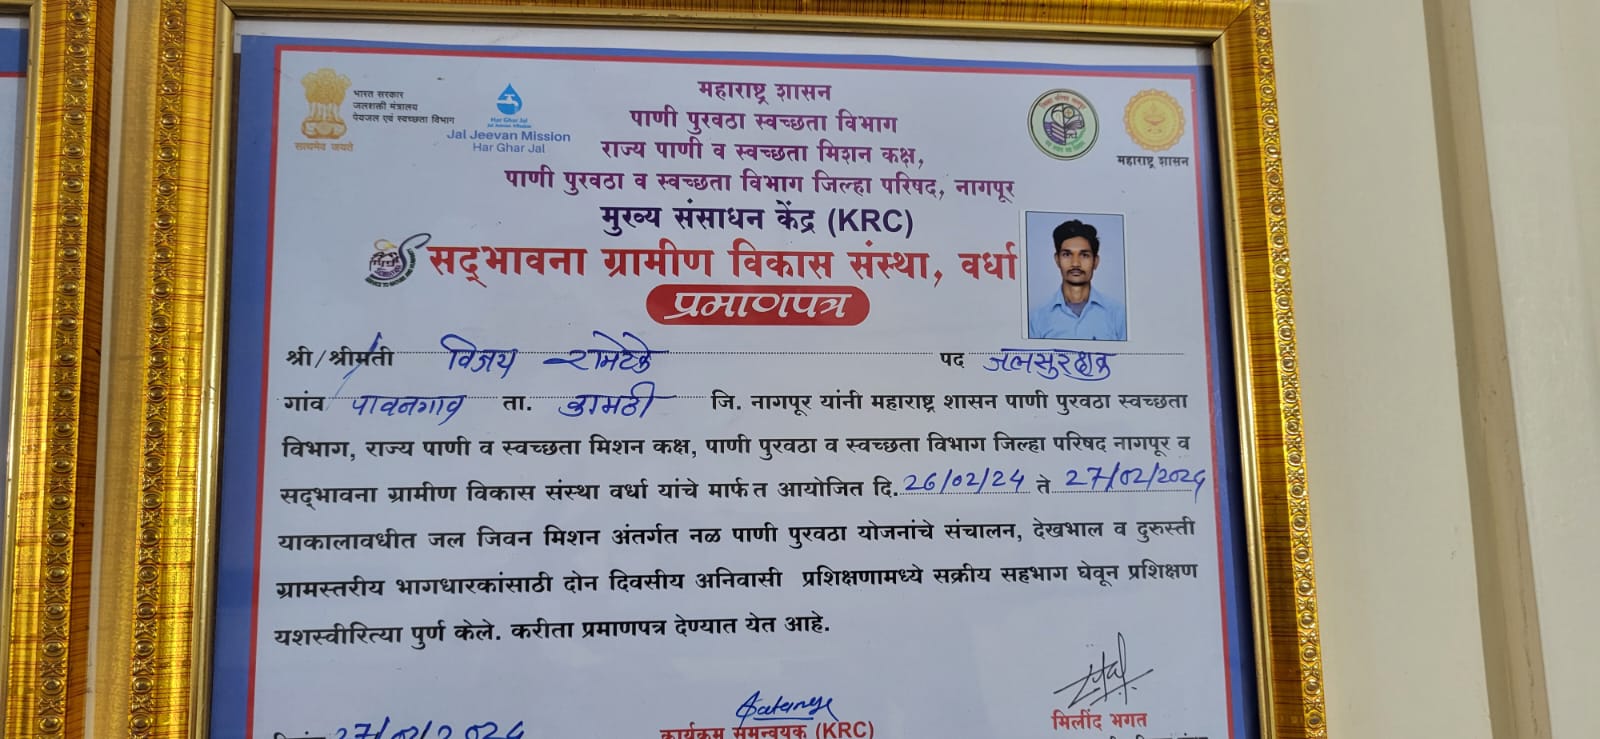 भारत सरकार
जलशक्ती मंत्रालय
पेयजल एवं स्वच्छता विभाग
सत्यमेव जयते
Har Ghar Jal
Jal Jeevan Mission
Jal Jeevan Mission
Har Ghar Jal
महाराष्ट्र शासन
पाणी पुरवठा स्वच्छता विभाग
राज्य पाणी व स्वच्छता मिशन कक्ष,
पाणी पुरवठा व स्वच्छता विभाग जिल्हा परिषद, नागपूर
महाराष्ट्र शासन
मुख्य संसाधन केंद्र (KRC)
सद्‌भावना ग्रामीण विकास संस्था, वर्धा
प्रमाणपत्र
श्री/श्रीमती विजय रामटेके पद जलसुरक्षक
गांव पावनगाव ता. कामठी जि. नागपूर यांनी महाराष्ट्र शासन पाणी पुरवठा स्वच्छता
विभाग, राज्य पाणी व स्वच्छता मिशन कक्ष, पाणी पुरवठा व स्वच्छता विभाग जिल्हा परिषद नागपूर व
सद्‌भावना ग्रामीण विकास संस्था वर्धा यांचे मार्फत आयोजित दि. 26/02/24 ते 27/02/2024
याकालावधीत जल जिवन मिशन अंतर्गत नळ पाणी पुरवठा योजनांचे संचालन, देखभाल व दुरुस्ती
ग्रामस्तरीय भागधारकांसाठी दोन दिवसीय अनिवासी प्रशिक्षणामध्ये सक्रीय सहभाग घेवून प्रशिक्षण
यशस्वीरित्या पुर्ण केले. करीता प्रमाणपत्र देण्यात येत आहे.
27/02/2024
कार्यक्रम समन्वयक (KRC)
मिलींद भगत